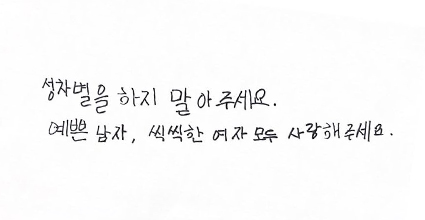 성차별을 하지 말아주세요.
예쁜 남자, 씩씩한 여자 모두 사랑해주세요.